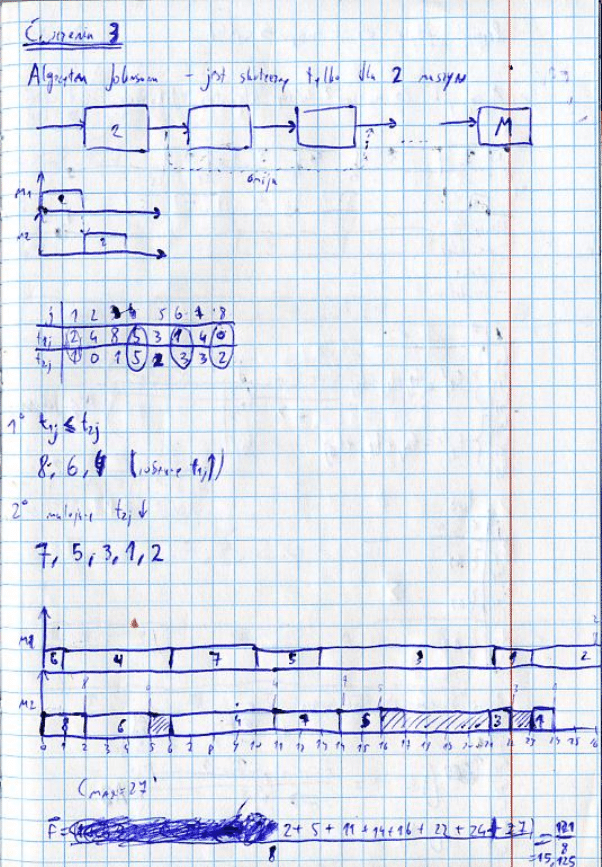 Ćwiczenia 3
Algorytm Johnsona - jest skuteczny tylko dla 2 maszyn
2 M
omija
M1 2
M2 2
j 1 2 3 4 5 6 7 8
t1j 2 4 8 5 3 1 4 0
t2j 1 0 1 5 2 3 3 2
1° t1j ≤ t2j
8, 6, 4 ( t1j ↑)
2° malejąco t2j ↓
7, 5, 3, 1, 2
M1 6 4 7 5 3 1 2
M2 8 6 4 7 5 3 1
0 1 2 3 4 5 6 7 8 9 10 11 12 13 14 15 16 17 18 19 20 21 22 23 24 25 26
Cmax=27
F̄= 2+5+11+14+16+22+24+27 = 121
8 8
=15,125